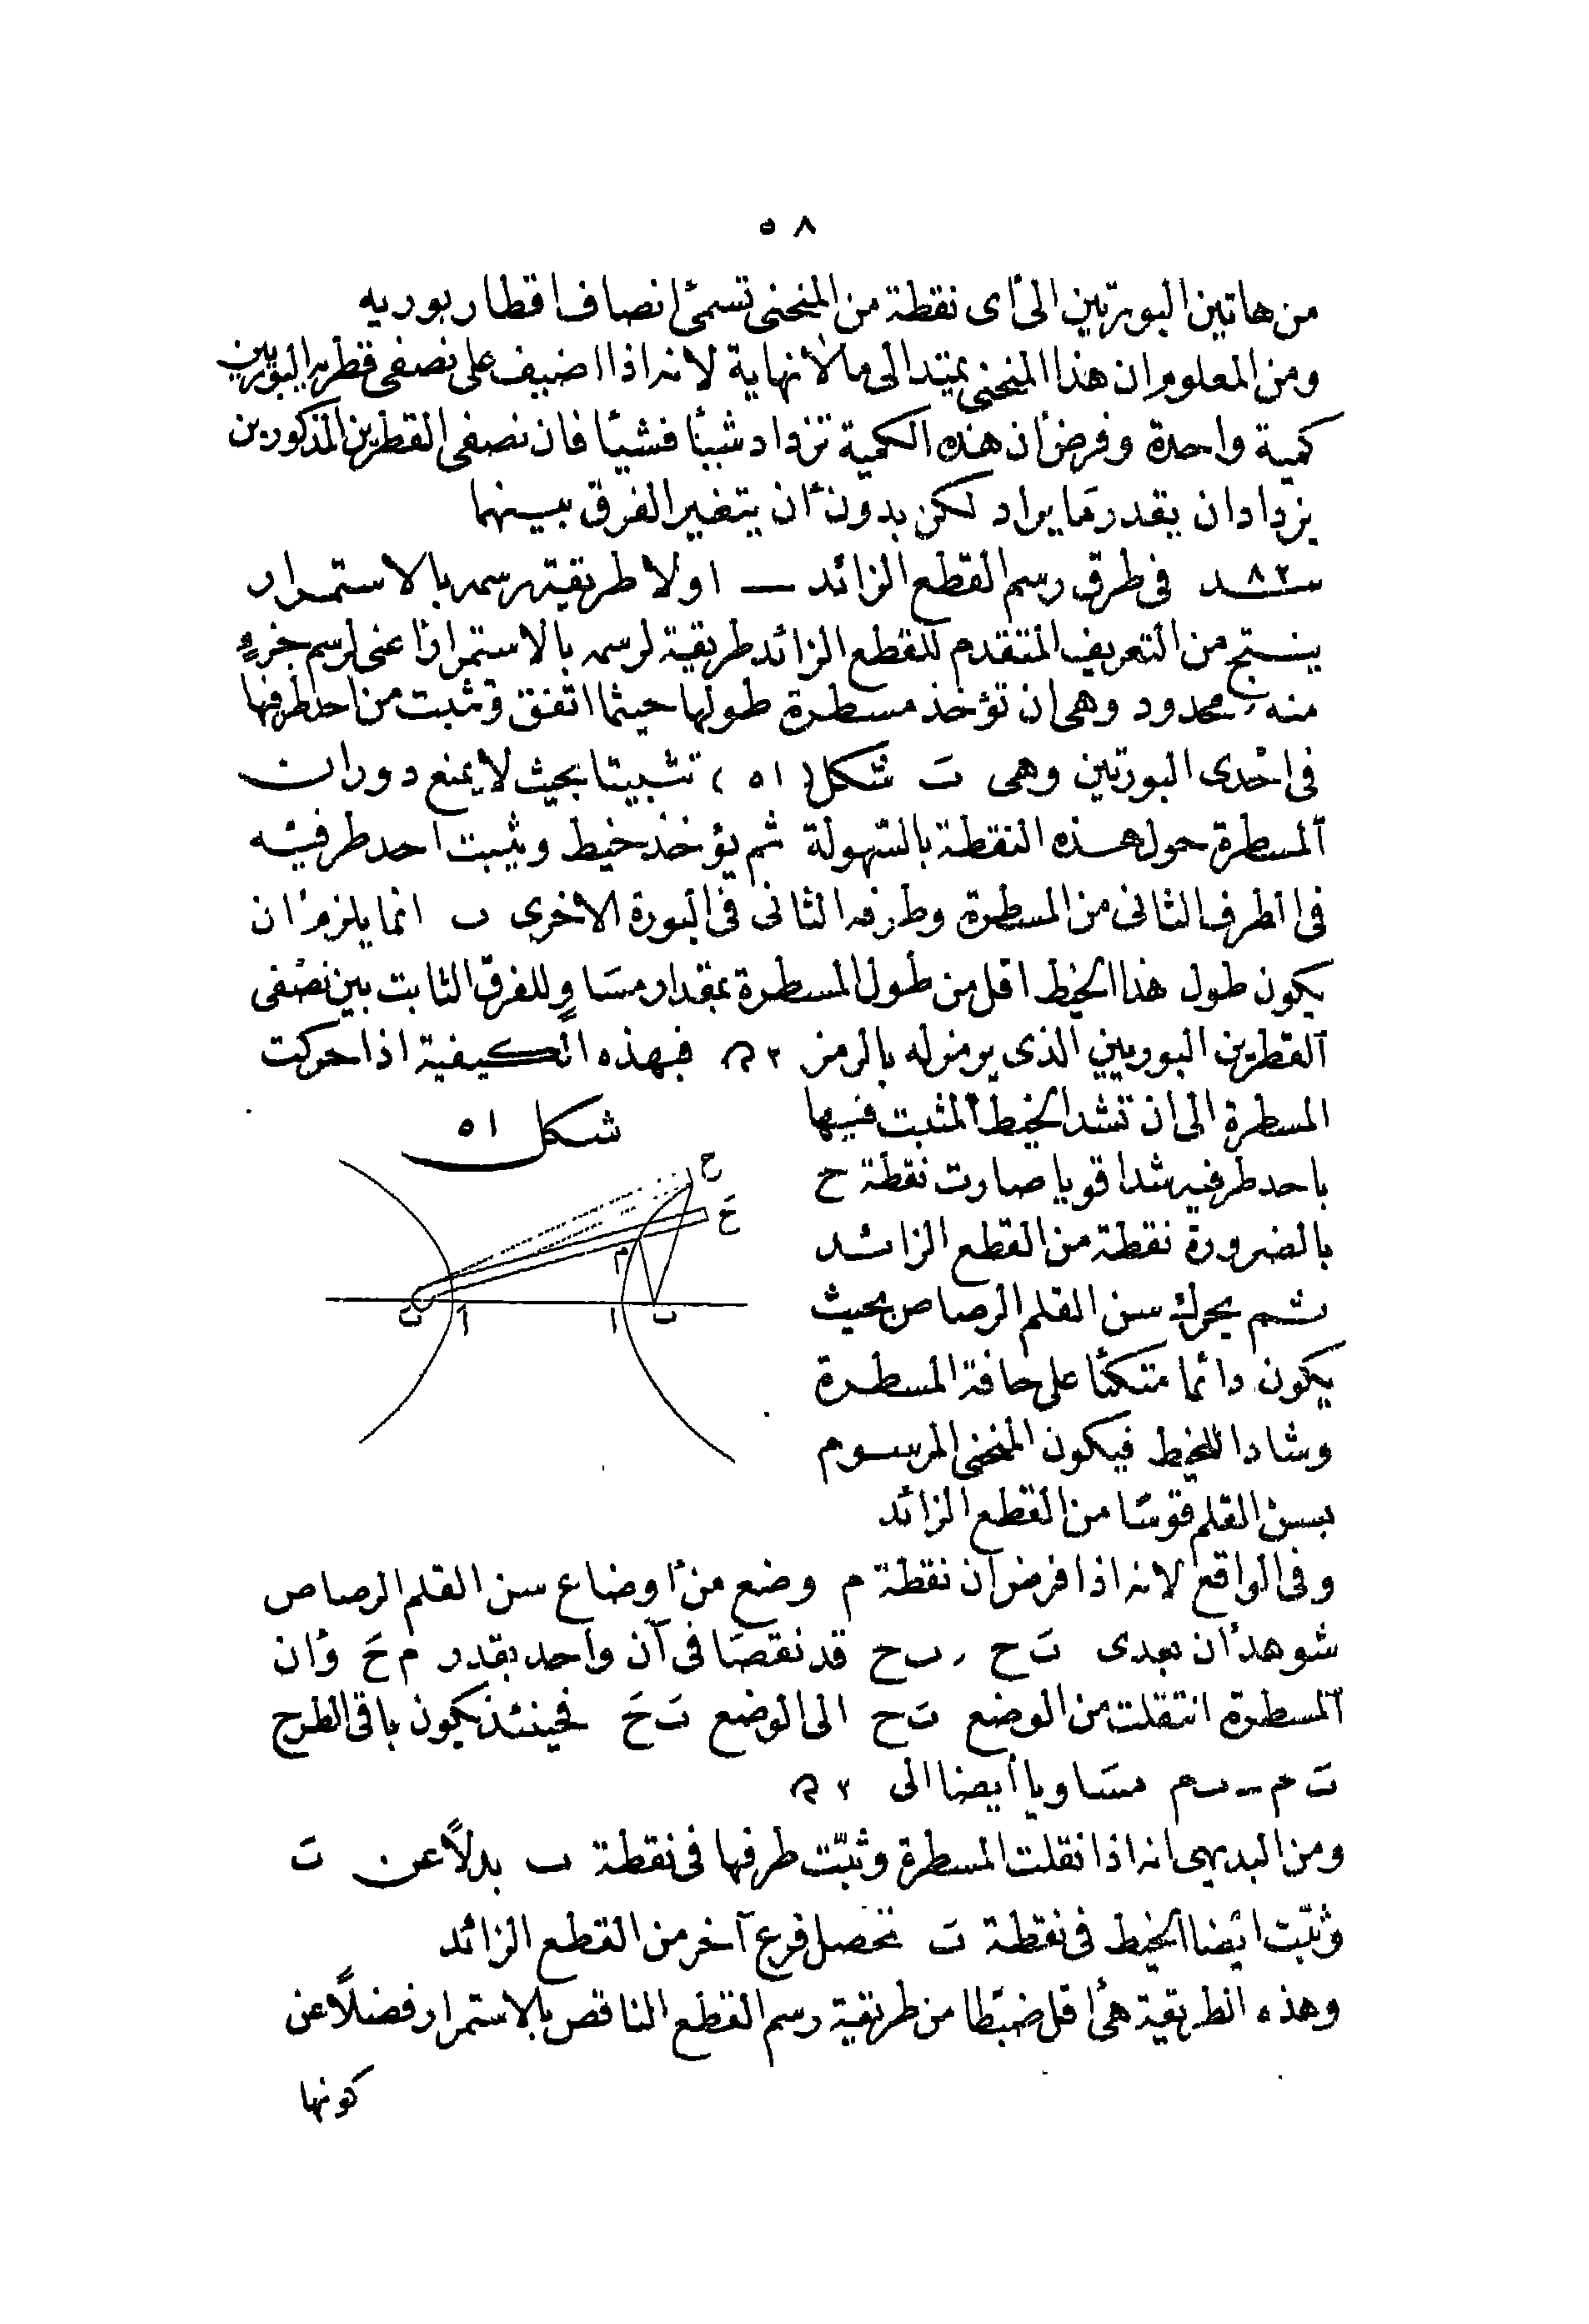 ٥٨
من هاتين البورتين الى أى نقطة من المنحنى تسمى أنصاف اقطار بوريه
ومن المعلوم ان هذا المنحنى يمتد الى مالانهاية لانه اذا اضيف على نصفى قطريه البوريين
كمية واحدة وفرض أن هذه الكمية تزداد شيئا فشيئا فان نصفى القطرين المذكورين
يزدادان بقدر ما يراد لكن بدون أن يتغير الفرق بينهما
٨٢ فى طرق رسم القطع الزائد — اولا طريقة رسمه بالاستمرار
ينتج من التعريف المتقدم للقطع الزائد طريقة لرسمه بالاستمرار أعنى لرسم جزء
منه محدود وهى ان تؤخذ مسطرة طولها حيثما اتفق وتثبت من احد طرفيها
فى احدى البورتين وهى ت شكل (٥١) تثبيتا بحيث لا يمنع دوران
المسطرة حول هذه النقطة بالسهولة ثم يؤخذ خيط ويثبت احد طرفيه
فى الطرف الثانى من المسطرة وطرفه الثانى فى البورة الاخرى ب انما يلزم أن
يكون طول هذا الخيط اقل من طول المسطرة بمقدار مساو للفرق الثابت بين نصفى
القطرين البوريين الذى يرمز له بالرمز ٢ ح فبهذه الكيفية اذا حركت
المسطرة الى ان تشد الخيط المثبت فيها
باحد طرفيه شدا قويا صارت نقطة ح
بالضرورة نقطة من القطع الزائد
ثم يحرك سن القلم الرصاص بحيث
يكون دائما متكئا على حافة المسطرة
وشادا للخيط فيكون المنحنى المرسوم
بسن القلم قوسا من القطع الزائد
شكل ٥١
ح
حَ
م
تَ
أ
ا
ب
وفى الواقع لانه اذا فرض أن نقطة م وضع من أوضاع سن القلم الرصاص
شوهد أن بعدى تَ ح ، ب ح قد نقصا فى آن واحد بقدر م حَ وأن
المسطرة انتقلت من الوضع تَ ح الى الوضع تَ حَ فحينئذ يكون باقى الطرح
تَ م – ب م مساويا أيضا الى ٢ ح
ومن البديهى انه اذا نقلت المسطرة وثبّت طرفها فى نقطة ب بدلاً عن تَ
وثبّت ايضا الخيط فى نقطة تَ تحصل فرع آخر من القطع الزائد
وهذه الطريقة هى أقل ضبطا من طريقة رسم القطع الناقص بالاستمرار فضلاً عن
كونها